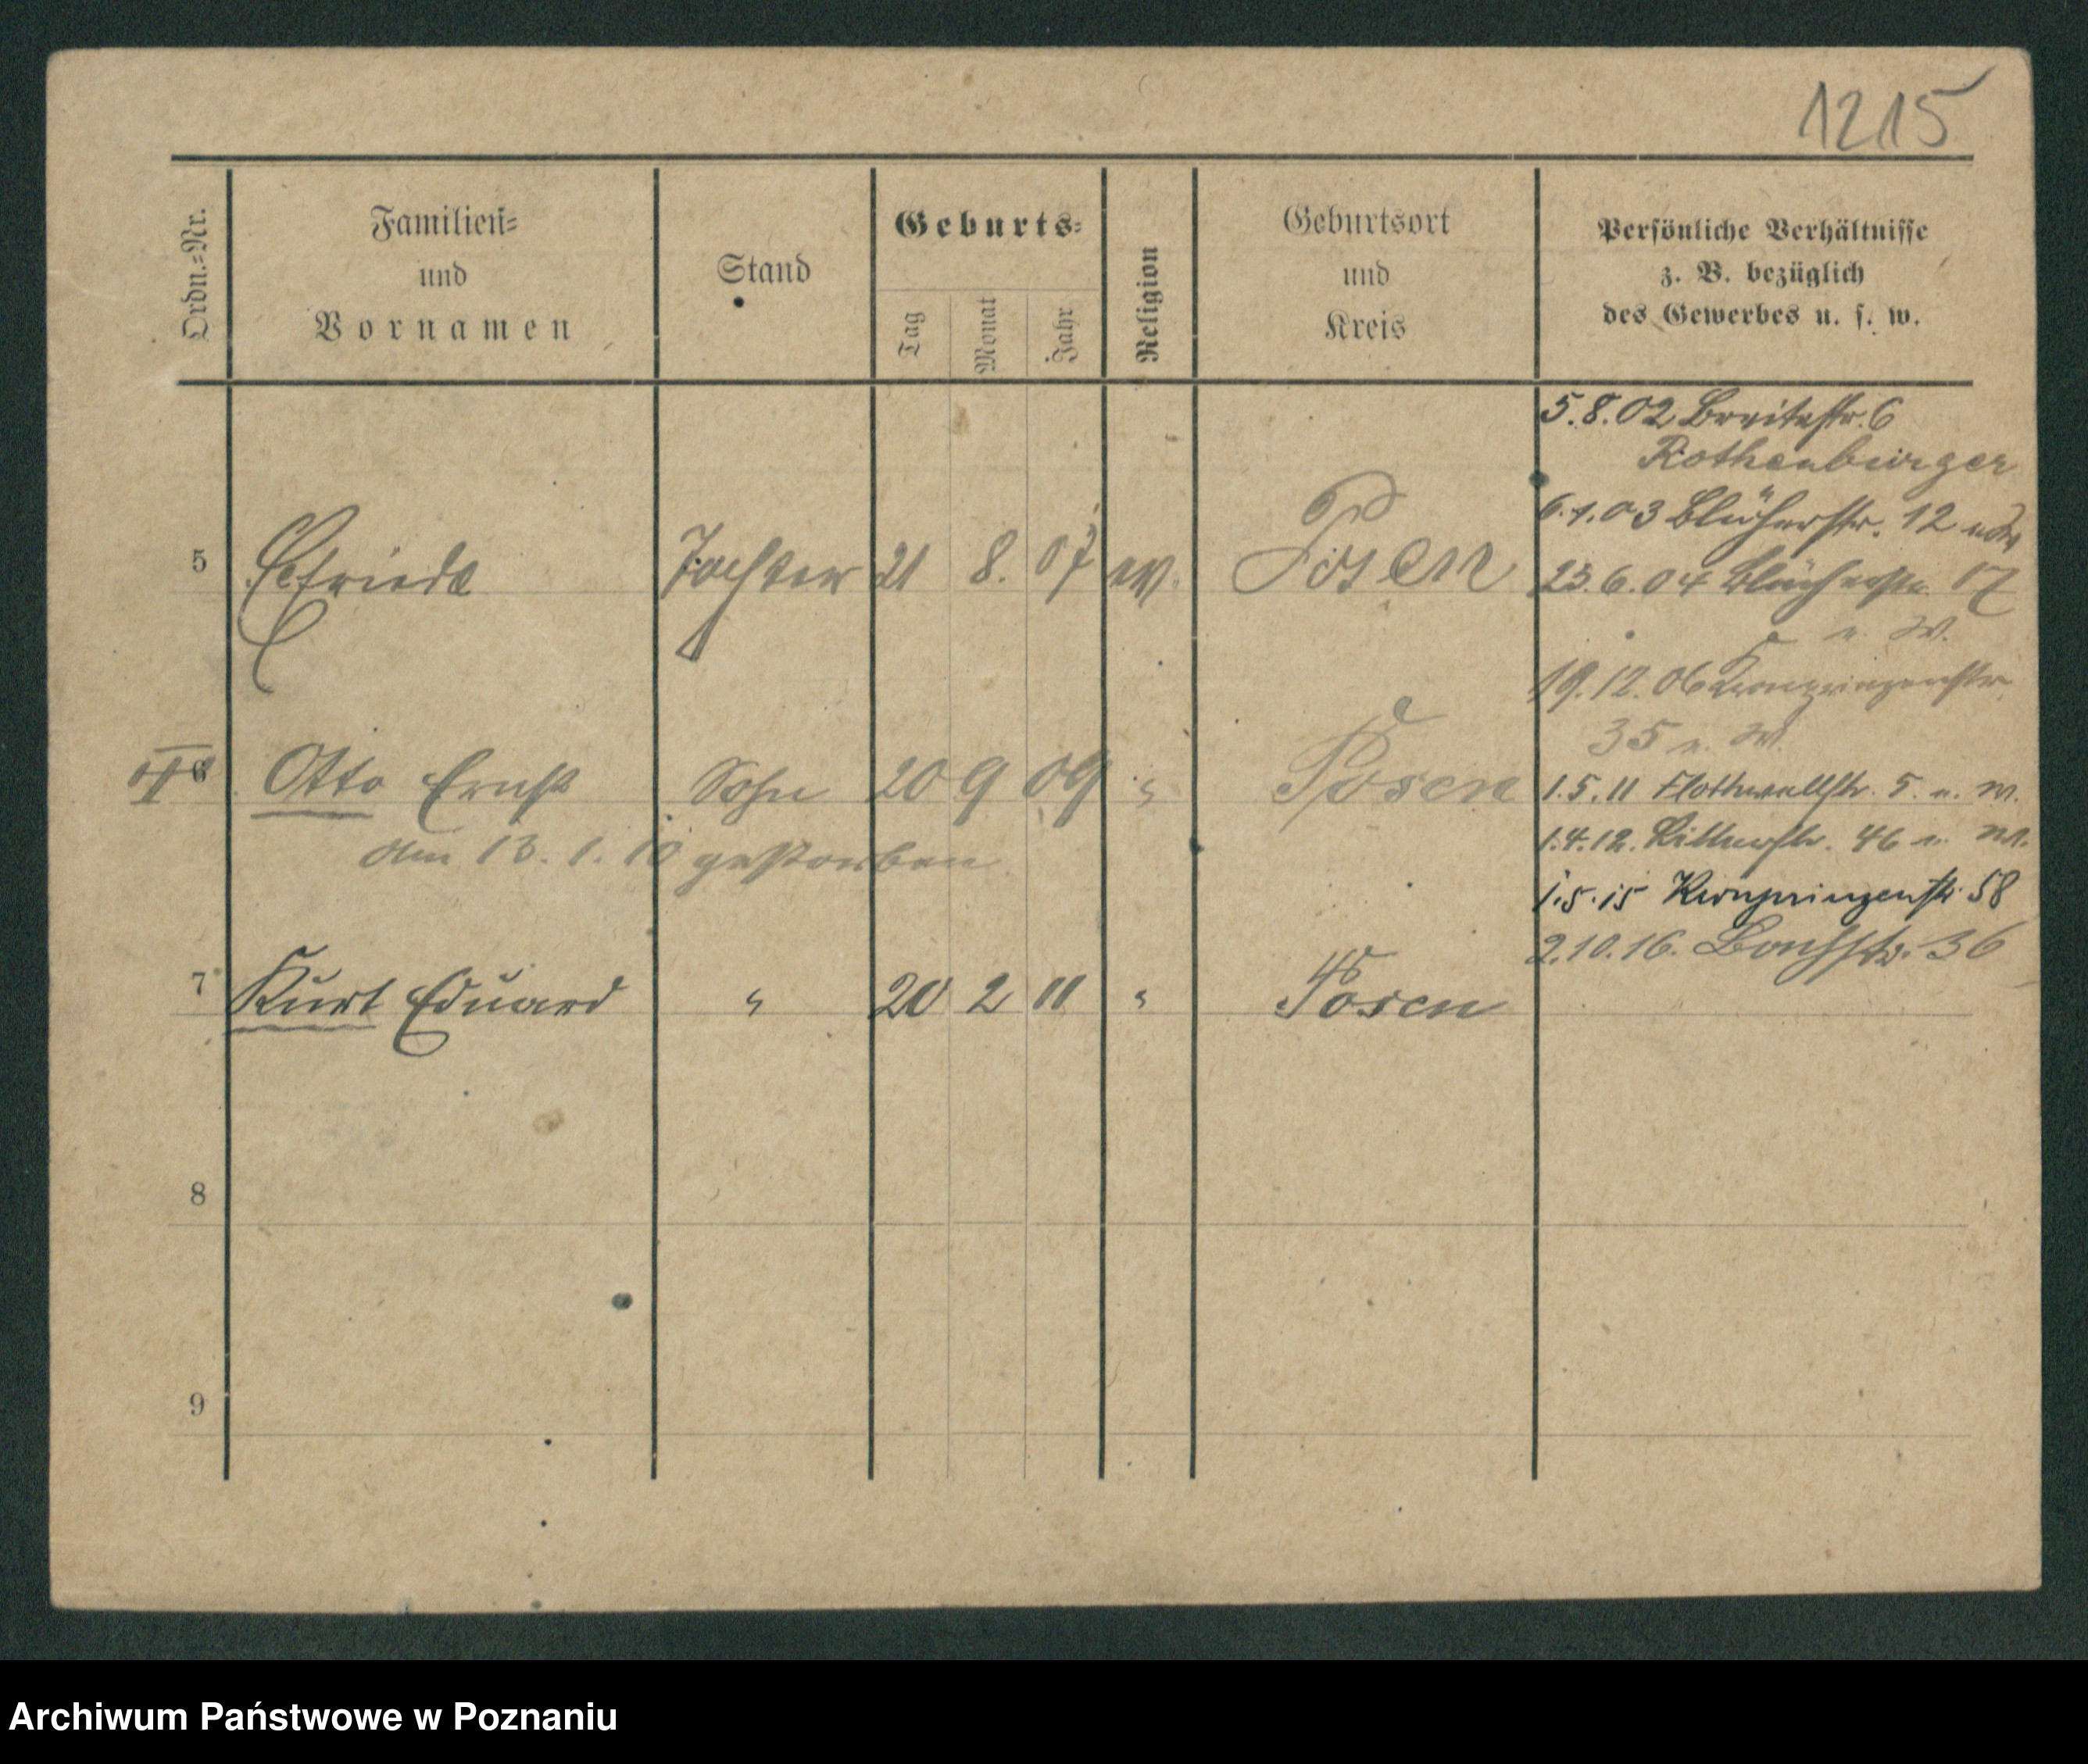 1215
Ordn.=Nr.
Familien=
und
Vornamen
Stand
Geburts=
Tag
Monat
Jahr
Religion
Geburtsort
und
Kreis
Persönliche Verhältnisse
z. B. bezüglich
des Gewerbes u. s. w.
5.8.02 Breitestr. 6
Rothenburger
6.1.03 Blücherstr. 12
5 Elfriede Tochter 21 8. 07 ev. Posen
23.6.04 Blücherstr. 17
u. W.
19.12.06 Kronprinzenstr.
35 u. W.
6 Otto Ernst Sohn 20 9 09 " Posen
1.5.11 Flottwellstr. 5. u. W.
am 13.1.10 gestorben
1.4.12. 46 u. W.
1.5.15 Kronprinzenstr. 58
2.10.16. 36
7 Kurt Eduard " 20 2 11 " Posen
8
9
Archiwum Państwowe w Poznaniu